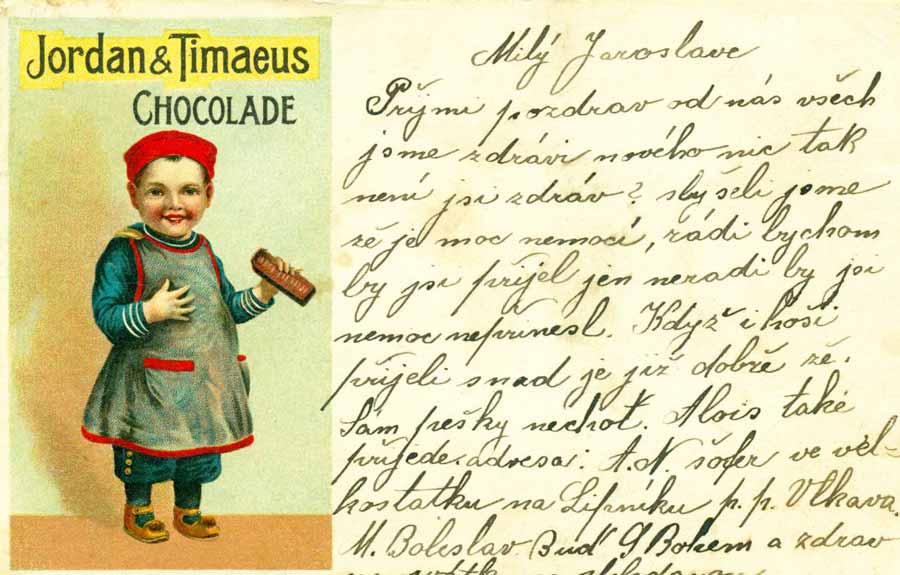 Jordan & Timaeus
CHOCOLADE
Milý Jaroslave
Přijmi pozdrav od nás všech
jsme zdrávi nového nic tak
není jsi zdráv? slyšeli jsme
zě je moc nemocí, rádi bychom
by jsi přijel jen neradi by jsi
nemoc nepřinesl. Když i hoši
přijeli snad je již dobře zě.
Sám pěšky nechoť. Alois také
přijede. adresa: A.N. šofer ve vel-
kostatku na Lipníku p.p. Vlkava.
M. Boleslav Buď S Bohem a zdrav